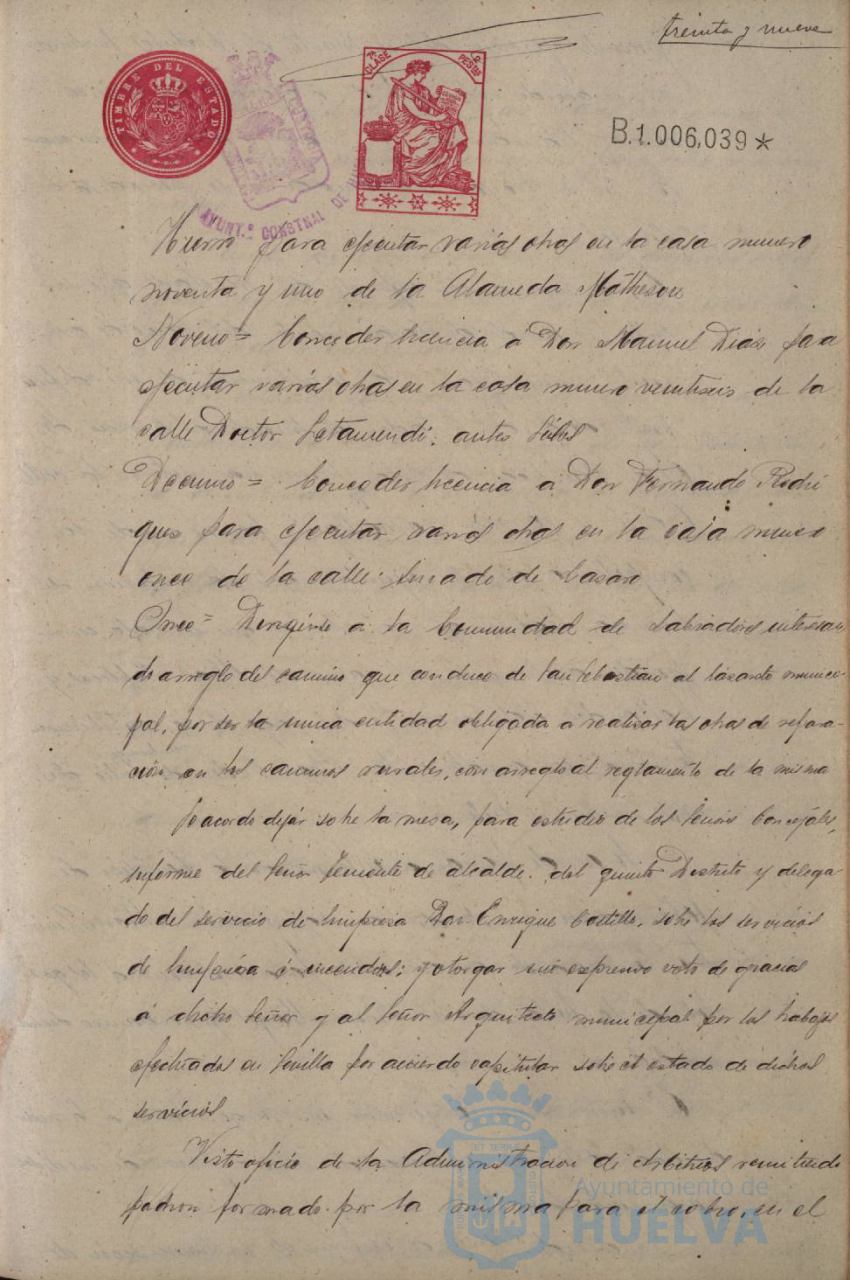 treinta y nueve
TIMBRE DEL ESTADO
7ª CLASE
PESTAS
B.1.006,039*
AYUNT.º CONSTNAL DE HU
para ejecutar varias obras en la casa numero
noventa y uno de la Alameda Matheson
Noveno = Conceder licencia á Don Manuel Diaz para
ejecutar varias obras en la casa numero veintiseis de la
calle Doctor Letamendi: antes
Decimo = Conceder licencia a Don Fernando Rodri
guez para ejecutar varias obras en la casa numero
once de la calle de
Once = Dirigirse a la Comunidad de Labradores interesan
do arreglo del camino que conduce de San Sebastian al Lazareto munici-
pal, por ser la unica entidad obligada a realizar las obras de repara-
ción en los caminos rurales, con arreglo al reglamento de la misma
Se acordo dejar sobre la mesa, para estudio de los Señores Concejales,
informe del Señor Teniente de alcalde del quinto Distrito y delega-
do del servicio de limpieza Don Enrique Castillo, sobre los servicios
de limpieza é incendios; y otorgar un expresivo voto de gracias
á dicho Señor y al Señor Arquitecto municipal por los trabajos
efectuados en Sevilla por acuerdo capitular sobre el estado de dichos
servicios
Visto oficio de la Administracion de Arbitrios remitiendo
padron formado por la misma para el cobro, en el
Ayuntamiento de
HUELVA